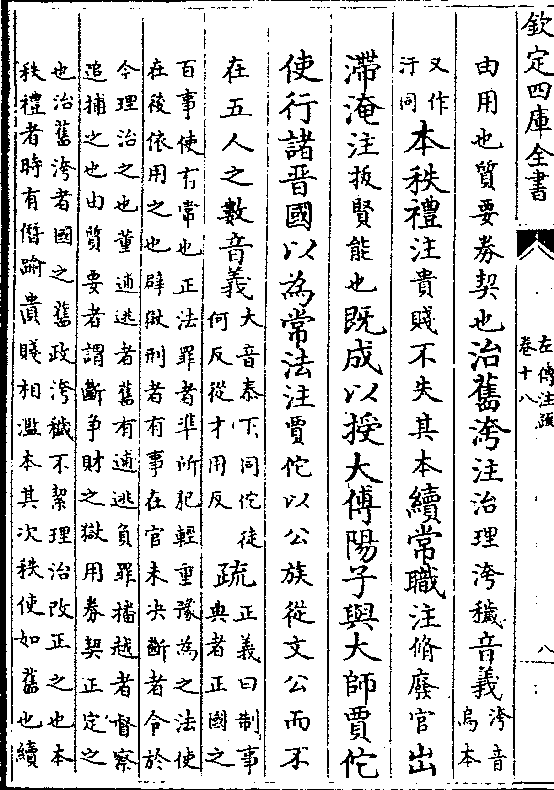 欽定四庫全書
左傳注疏
卷十八
八
由用也質要劵契也治舊洿注治理洿穢音義洿音烏本
又作汙同本秩禮注貴賤不失其本續常職注脩廢官出
滯淹注拔賢能也既成以授大傅陽子與大師賈佗
使行諸晉國以為常法注賈佗以公族從文公而不
在五人之數音義大音泰下同佗徒何反從才用反疏正義曰制事典者正國之
百事使有常也正法罪者準所犯輕重豫為之法使
在後依用之也辟獄刑者有事在官未决斷者令於
今理治之也董逋逃者舊有逋逃負罪播越者督察
追捕之也由質要者謂斷争財之獄用劵契正定之
也治舊洿者國之舊政洿穢不絜理治改正之也本
秩禮者時有僭踰貴賤相濫本其次秩使如舊也續